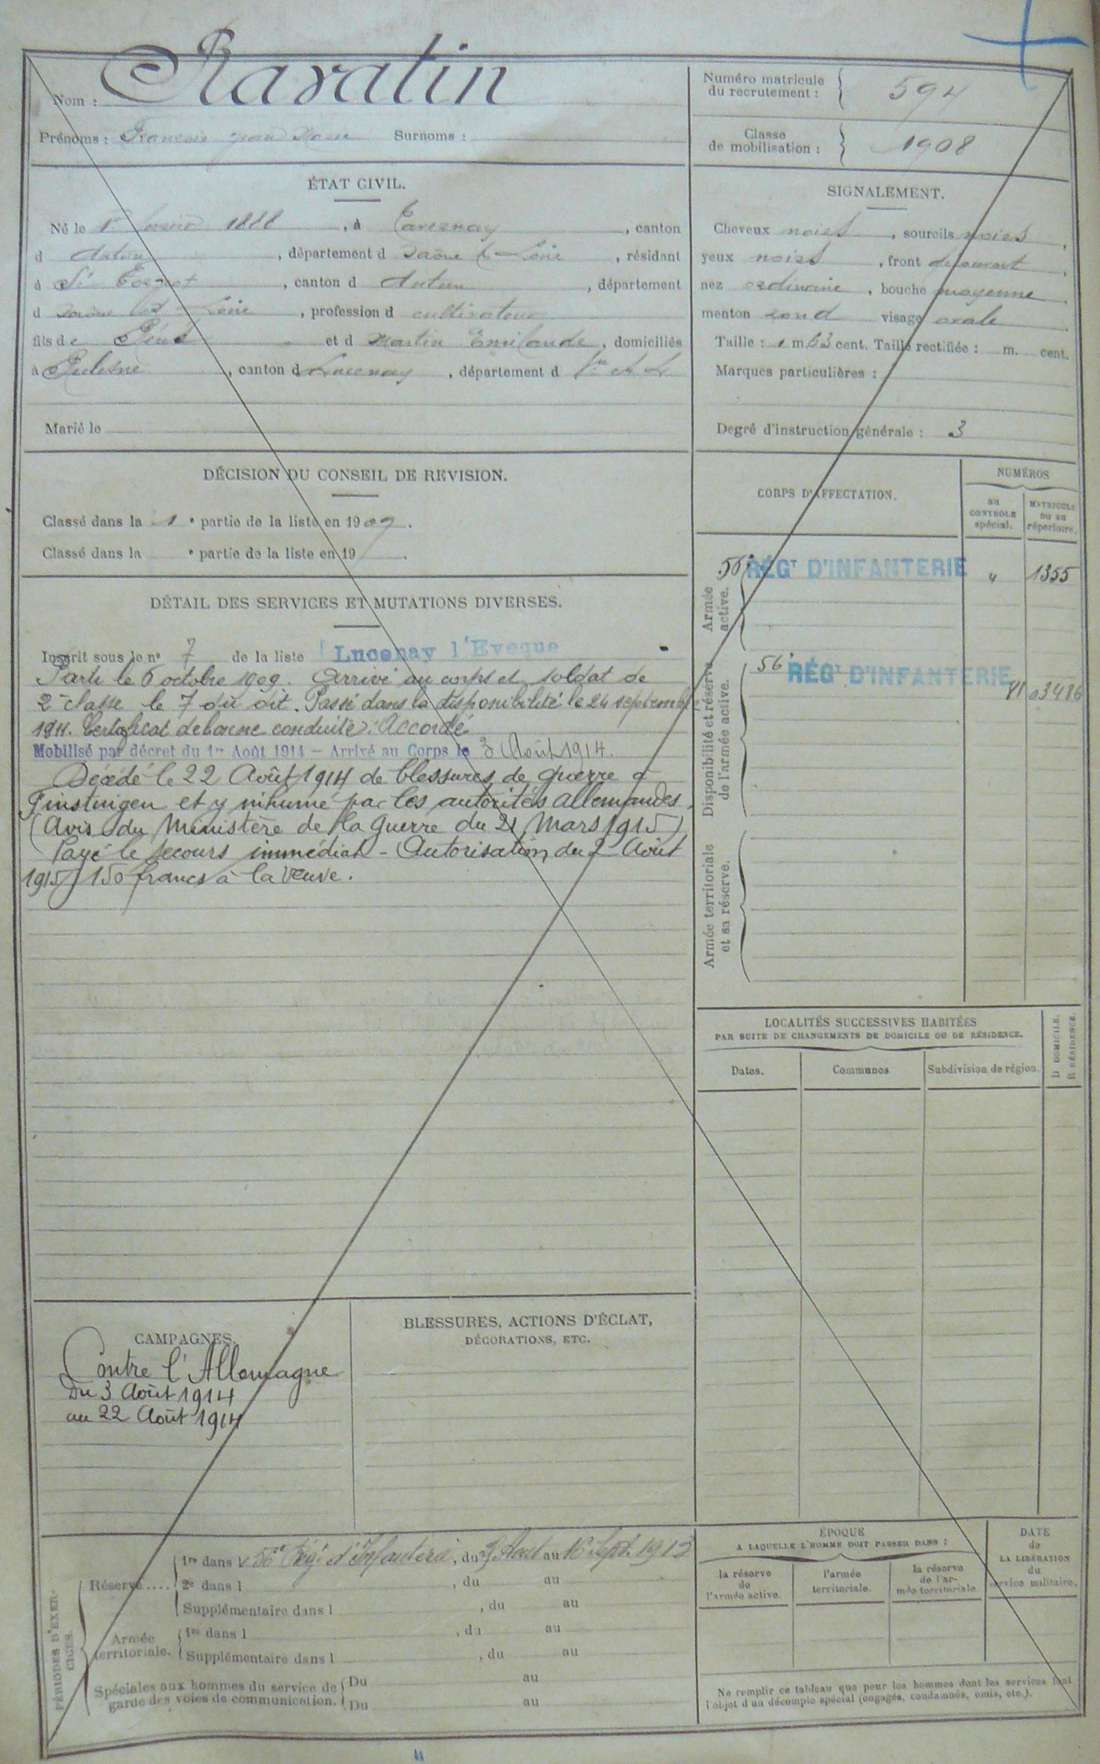 Nom : Ravatin
Prénoms : François Jean Marie Surnoms :
Numéro matricule du recrutement : 594
Classe de mobilisation : 1908
ÉTAT CIVIL.
Né le 1er 1888, à Tavernay, canton
d Autun, département d Saône & Loire, résidant
à St Forgeot, canton d Autun, département
d Saône et Loire, profession d cultivateur
fils de et d Martin Emilande, domiciliés
à , canton d Lucenay, département d
Marié le
SIGNALEMENT.
Cheveux noirs, sourcils noirs,
yeux noirs, front découvert,
nez ordinaire, bouche moyenne
menton rond visage ovale
Taille : 1 m 63 cent. Taille rectifiée : m. cent.
Marques particulières :
Degré d'instruction générale : 3
DÉCISION DU CONSEIL DE REVISION.
Classé dans la 1e partie de la liste en 1909.
Classé dans la e partie de la liste en 19 .
DÉTAIL DES SERVICES ET MUTATIONS DIVERSES.
Inscrit sous le n° 7 de la liste Lucenay l'Eveque
Parti le 6 octobre 1909. Arrivé au corps et soldat de
2e classe le 7 du dit. Passé dans la disponibilité le 24 septembre
1911. Certificat de bonne conduite : Accordé
Mobilisé par décret du 1er Août 1914 – Arrivé au Corps le 3 Août 1914.
Décédé le 22 Août 1914 de blessures de guerre à
Finstingen et y inhumé par les autorités allemandes.
(Avis du Ministère de la Guerre du 21 Mars 1915)
Payé le secours immédiat - Autorisation du 2 Août
1915, 150 francs à la veuve.
CORPS D'AFFECTATION.
NUMÉROS
au CONTROLE spécial.
MATRICULE ou au répertoire.
Armée active.
56e RÉGT D'INFANTERIE " 1355
Disponibilité et réserve de l'armée active.
56e RÉGT D'INFANTERIE 03486
Armée territoriale et sa réserve.
LOCALITÉS SUCCESSIVES HABITÉES
PAR SUITE DE CHANGEMENTS DE DOMICILE OU DE RÉSIDENCE.
Dates. Communes Subdivision de région.
D DOMICILE.
R RÉSIDENCE.
CAMPAGNES.
Contre l'Allemagne
Du 3 Août 1914
au 22 Août 1914
BLESSURES, ACTIONS D'ÉCLAT,
DÉCORATIONS, ETC.
PÉRIODES D'EXERCICES.
Réserve.....
1re dans le 56e Régt d'Infanterie, du Août au 16 Sept. 1913
2e dans l , du au
Supplémentaire dans l , du au
Armée territoriale.
1re dans l , du au
Supplémentaire dans l , du au
Spéciales aux hommes du service de garde des voies de communication.
Du au
Du au
ÉPOQUE
A LAQUELLE L'HOMME DOIT PASSER DANS :
la réserve de l'armée active.
l'armée territoriale.
la réserve de l'armée territoriale.
DATE de LA LIBÉRATION du service militaire.
Ne remplir ce tableau que pour les hommes dont les services font
l'objet d'un décompte spécial (engagés, condamnés, omis, etc.).